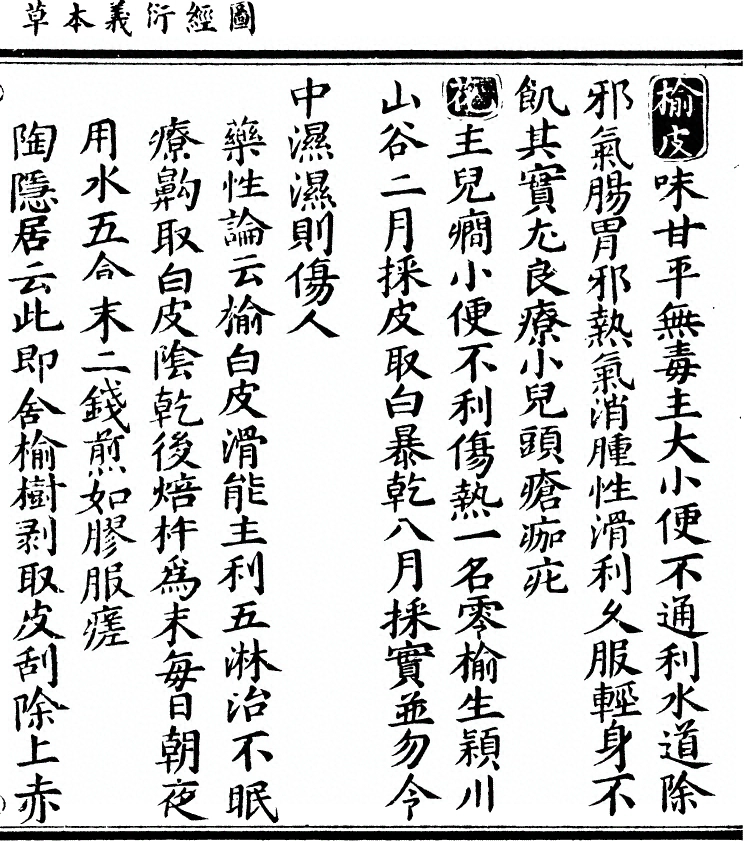 圖經衍義本草
榆皮味甘平無毒主大小便不通利水道除
邪氣腸胃邪熱氣消腫性滑利久服輕身不
飢其實尤良療小兒頭瘡痂疕
花主兒癇小便不利傷熱一名零榆生潁川
山谷二月採皮取白暴乾八月採實並勿令
中濕濕則傷人
藥性論云榆白皮滑能主利五淋治不眠
療齁取白皮陰乾後焙杵為末每日朝夜
用水五合末二錢煎如膠服瘥
陶隱居云此即舍榆樹剥取皮刮除上赤